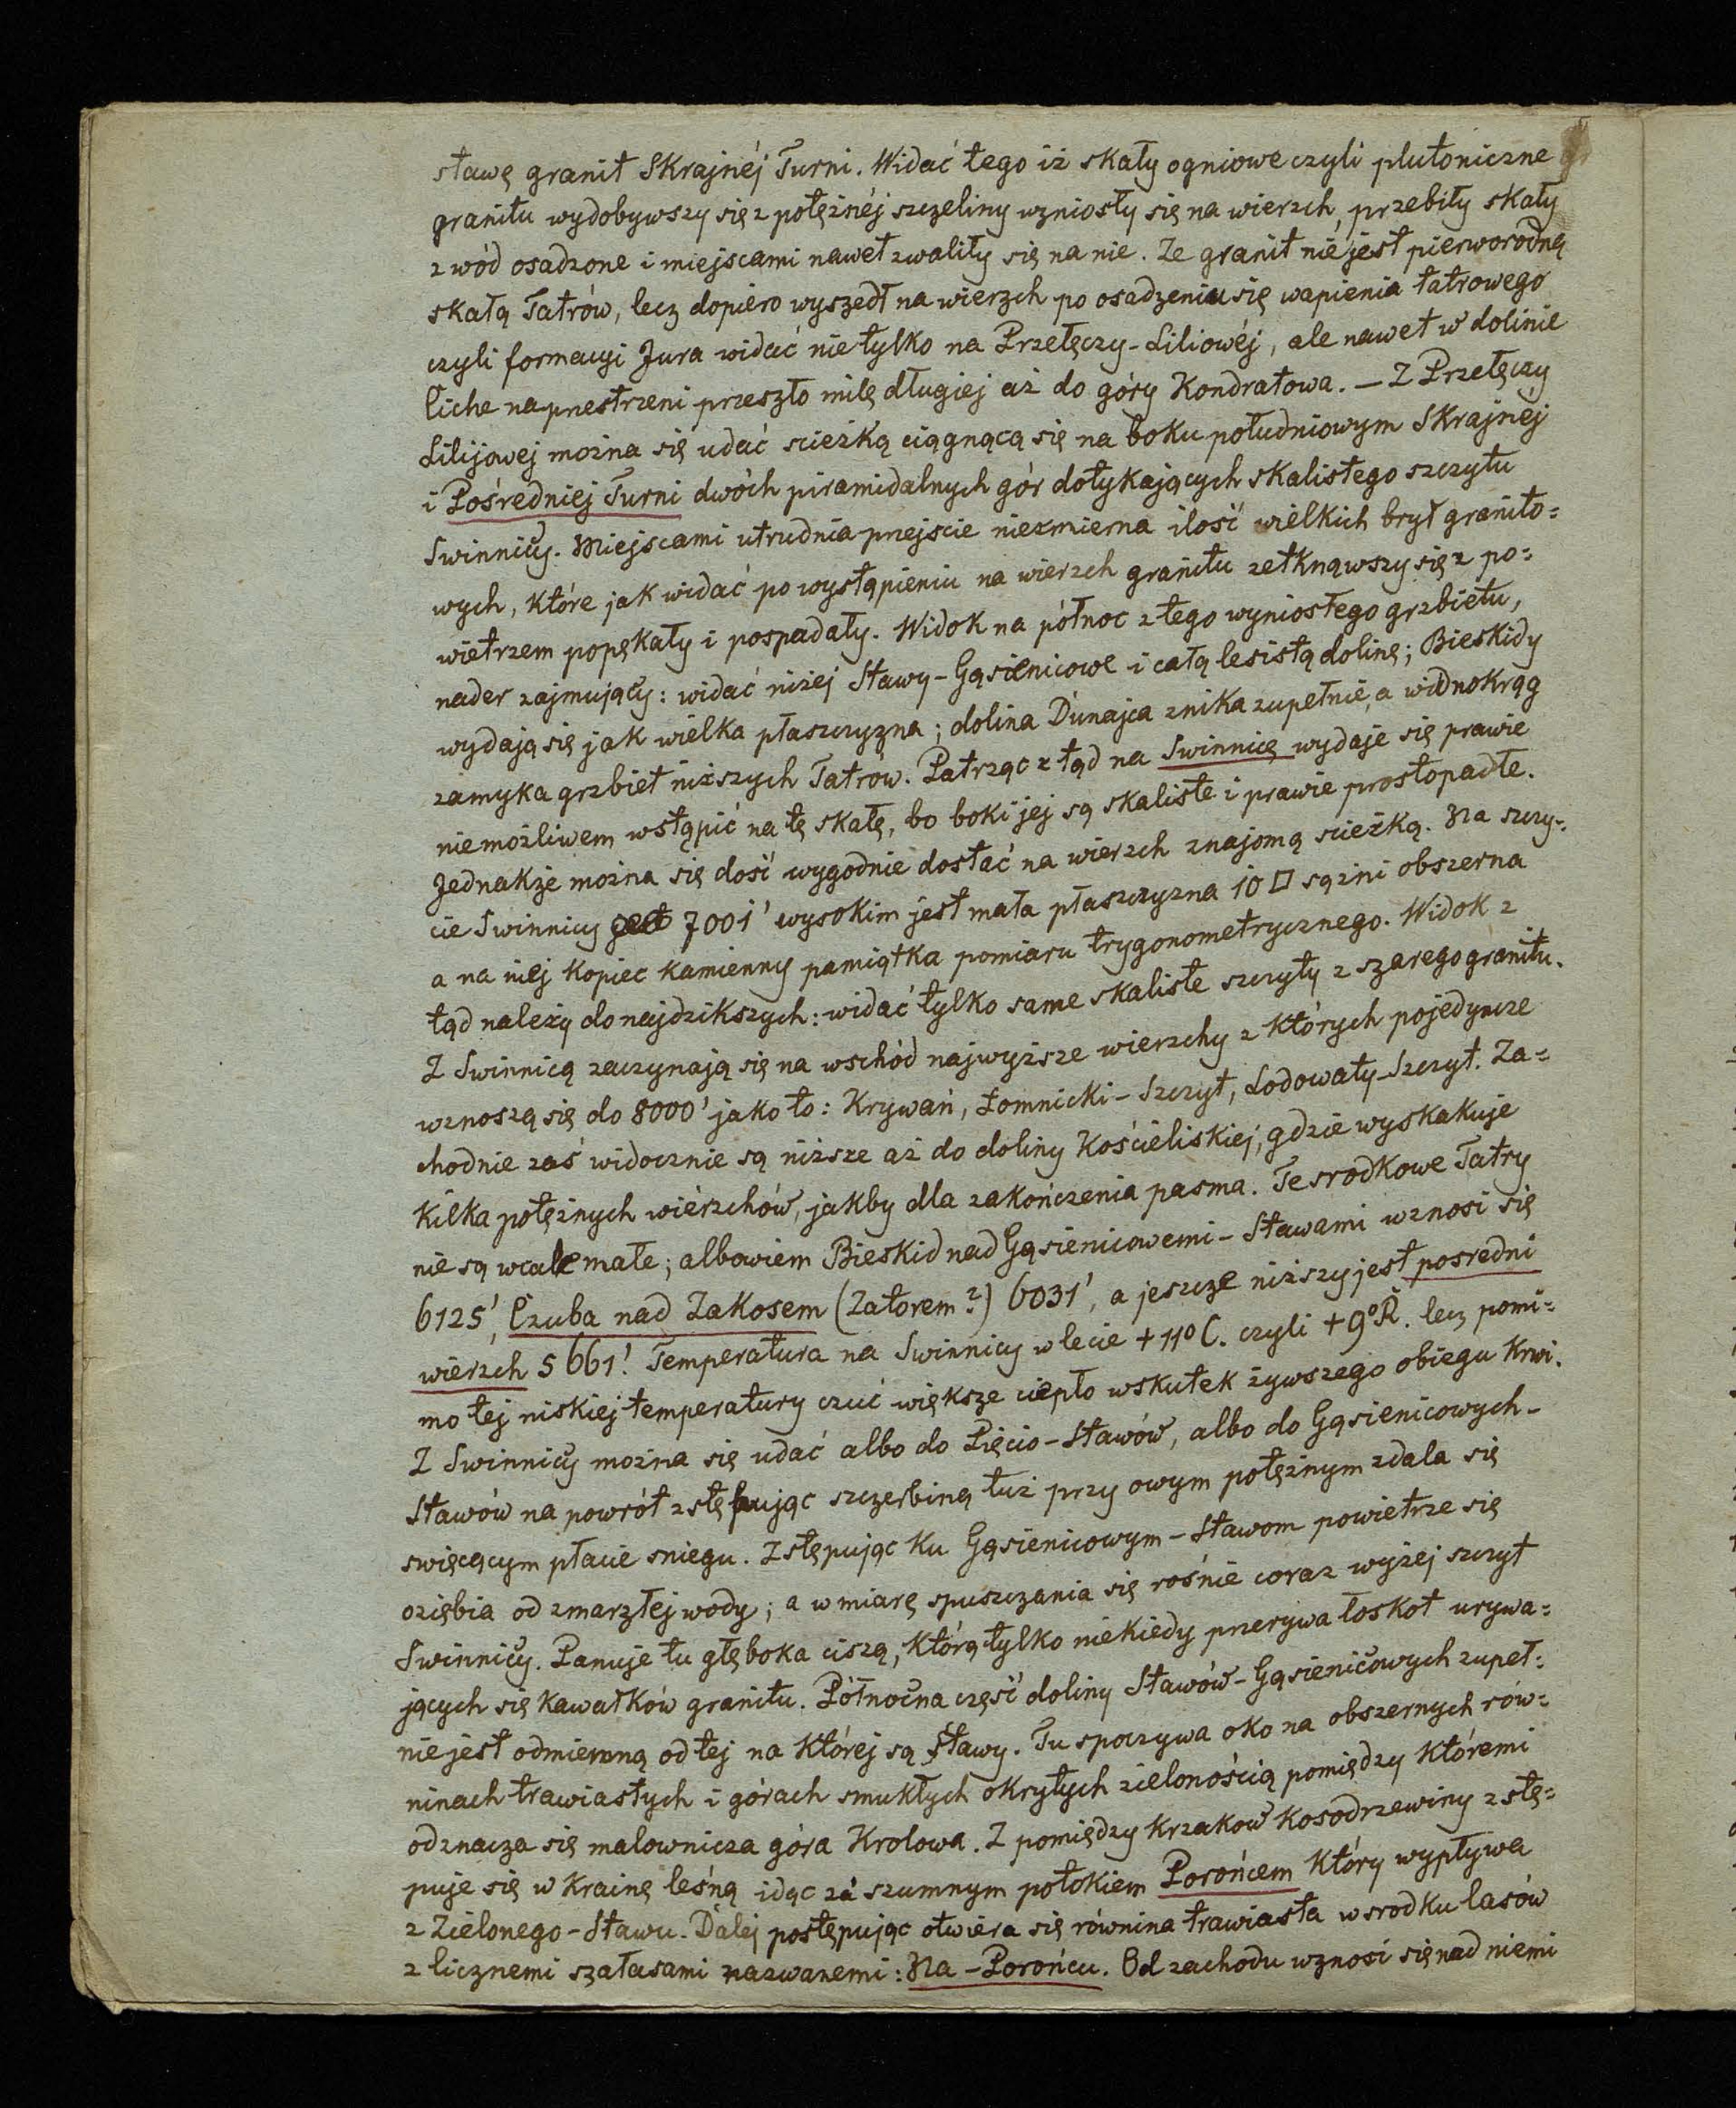 stawę granit Skrajnéj Turni. Widać tego iż skały ogniowe czyli plutoniczne
granitu wydobywszy się z potężnéj szczeliny wzniosły się na wierzch, przebiły skały
z wód osadzone i miejscami nawet zwaliły się na nie. Ze granit nie jest pierworodną
skałą Tatrów, lecz dopiero wyszedł na wierzch po osadzeniu się wapienia tatrowego
czyli formacyi Jura widać nie tylko na Przełęczy-Liliowéj, ale nawet w dolinie
Ciche na przestrzeni przeszło milę długiej aż do góry Kondratowa. — Z Przełęczy
Lilijowej można się udać scieżką ciągnącą się na boku południowym Skrajnej
i Pośredniej Turni dwóch piramidalnych gór dotykających skalistego szczytu
Swinnicy. Miejscami utrudnia przejscie niezmierna ilość wielkich brył granito=
wych, które jak widać po wystąpieniu na wierzch granitu zetknąwszy się z po=
wietrzem popękały i pospadały. Widok na północ z tego wyniosłego grzbietu,
nader zajmujący: widać niżej Stawy-Gąsienicowe i całą lesistą dolinę; Bieskidy
wydają się jak wielka płaszczyzna; dolina Dunajca znika zupełnie, a widnokrąg
zamyka grzbiet niższych Tatrów. Patrząc z tąd na Swinnicę wydaje się prawie
niemożliwem wstąpić na tę skałę, bo boki jej są skaliste i prawie prostopadłe.
Jednakże można się dość wygodnie dostać na wierzch znajomą scieżką. Na szczy=
cie Swinnicy 7001' wysokim jest mała płaszczyzna 10 □ sążni obszerna
a na niej kopiec kamienny pamiątka pomiaru trygonometrycznego. Widok z
tąd należy do najdzikszych: widać tylko same skaliste szczyty z szarego granitu.
Z Swinnicą zaczynają się na wschód najwyższe wierzchy z których pojedyncze
wznoszą się do 8000' jako to: Krywań, Łomnicki-Szczyt, Lodowaty-Szczyt. Za=
chodnie zaś widocznie są niższe aż do doliny Kościeliskiej, gdzie wyskakuje
kilka potężnych wiérzchów, jakby dla zakończenia pasma. Te srodkowe Tatry
nie są wcale małe; albowiem Bieskid nad Gąsienicowemi-Stawami wznosi się
6125', Czuba nad Zakosem (Zatorem?) 6031', a jeszcze niższy jest posredni
wierzch 5661'. Temperatura na Swinnicy w lecie +11° C. czyli +9° R. lecz pomi=
mo tej niskiej temperatury czuć większe ciepło wskutek żywszego obiegu krwi.
Z Swinnicy można się udać albo do Pięcio-Stawów, albo do Gąsienicowych-
Stawów na powrót zstępując szczerbiną tuż przy owym potężnym zdala się
swięcącym płacie sniegu. Zstępując ku Gąsienicowym-Stawom powietrze się
oziębia od zmarzłej wody; a w miarę spuszczania się rośnie coraz wyżej szczyt
Swinnicy. Panuje tu głęboka ciszą, którą tylko niekiedy przerywa łoskot urywa=
jących się kawałków granitu. Północna część doliny Stawów-Gąsienicowych zupeł=
nie jest odmienną od tej na której są stawy. Tu spoczywa oko na obszernych rów=
ninach trawiastych i górach smukłych okrytych zielonością pomiędzy któremi
odznacza się malownicza góra Krolowa. Z pomiędzy krzaków kosodrzewiny zstę=
puje się w krainę leśną idąc za szumnym potokiem Porońcem który wypływa
z Zielonego-Stawu. Dalej postępując otwiera się równina trawiasta wsrodku lasów
z licznemi szałasami nazwanemi: Na-Porońcu. Od zachodu wznosi się nad niemi